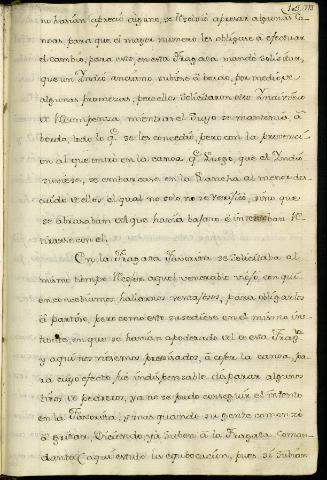 no harían aprecio alguno, se decidió apresar algunas Ca
noas, para que el mayor numero les obligase á efectuar
el cambio, para esto, en esta Fragata mandé solicitar
que un Indio anciano subiese á bordo, por medio de
algunas promesas, pero ellos solicitaron otro Individuo
de recompenza, mientras el suyo se mantenia á
bordo, todo lo q.e se les concedió, pero con la prevenci
on al que entró en la canoa q.e luego, que el Indio
subiese, se embarcase en la Lancha al menor des
cuido de ellos, el qual no solo no se verificó, sino que
se abrazaban del que havía bajado é intentaban re
tirarse con el.
En la Fragata Favorita se solicitaba al
mismo tiempo coger aquel venerable viejo, con qui
en conceptuamos hallarnos ventajosos, para obligarlos
á partido, pero como esto sucediese en el mismo ins
tante, en que se havian apoderado del de esta Frag.ta
y aqui nos viesemos precisados, á coger la canoa, pa
ra cuyo efecto fué indispensable disparar algunos
tiros de pedreros, ya no se pudo conseguir el intento
en la Favorita, y mas quando su gente comenzó
á gritar, diciendo, yá suben á la Fragata coman
danta (aqui estubo la equibocacion, pues si subian